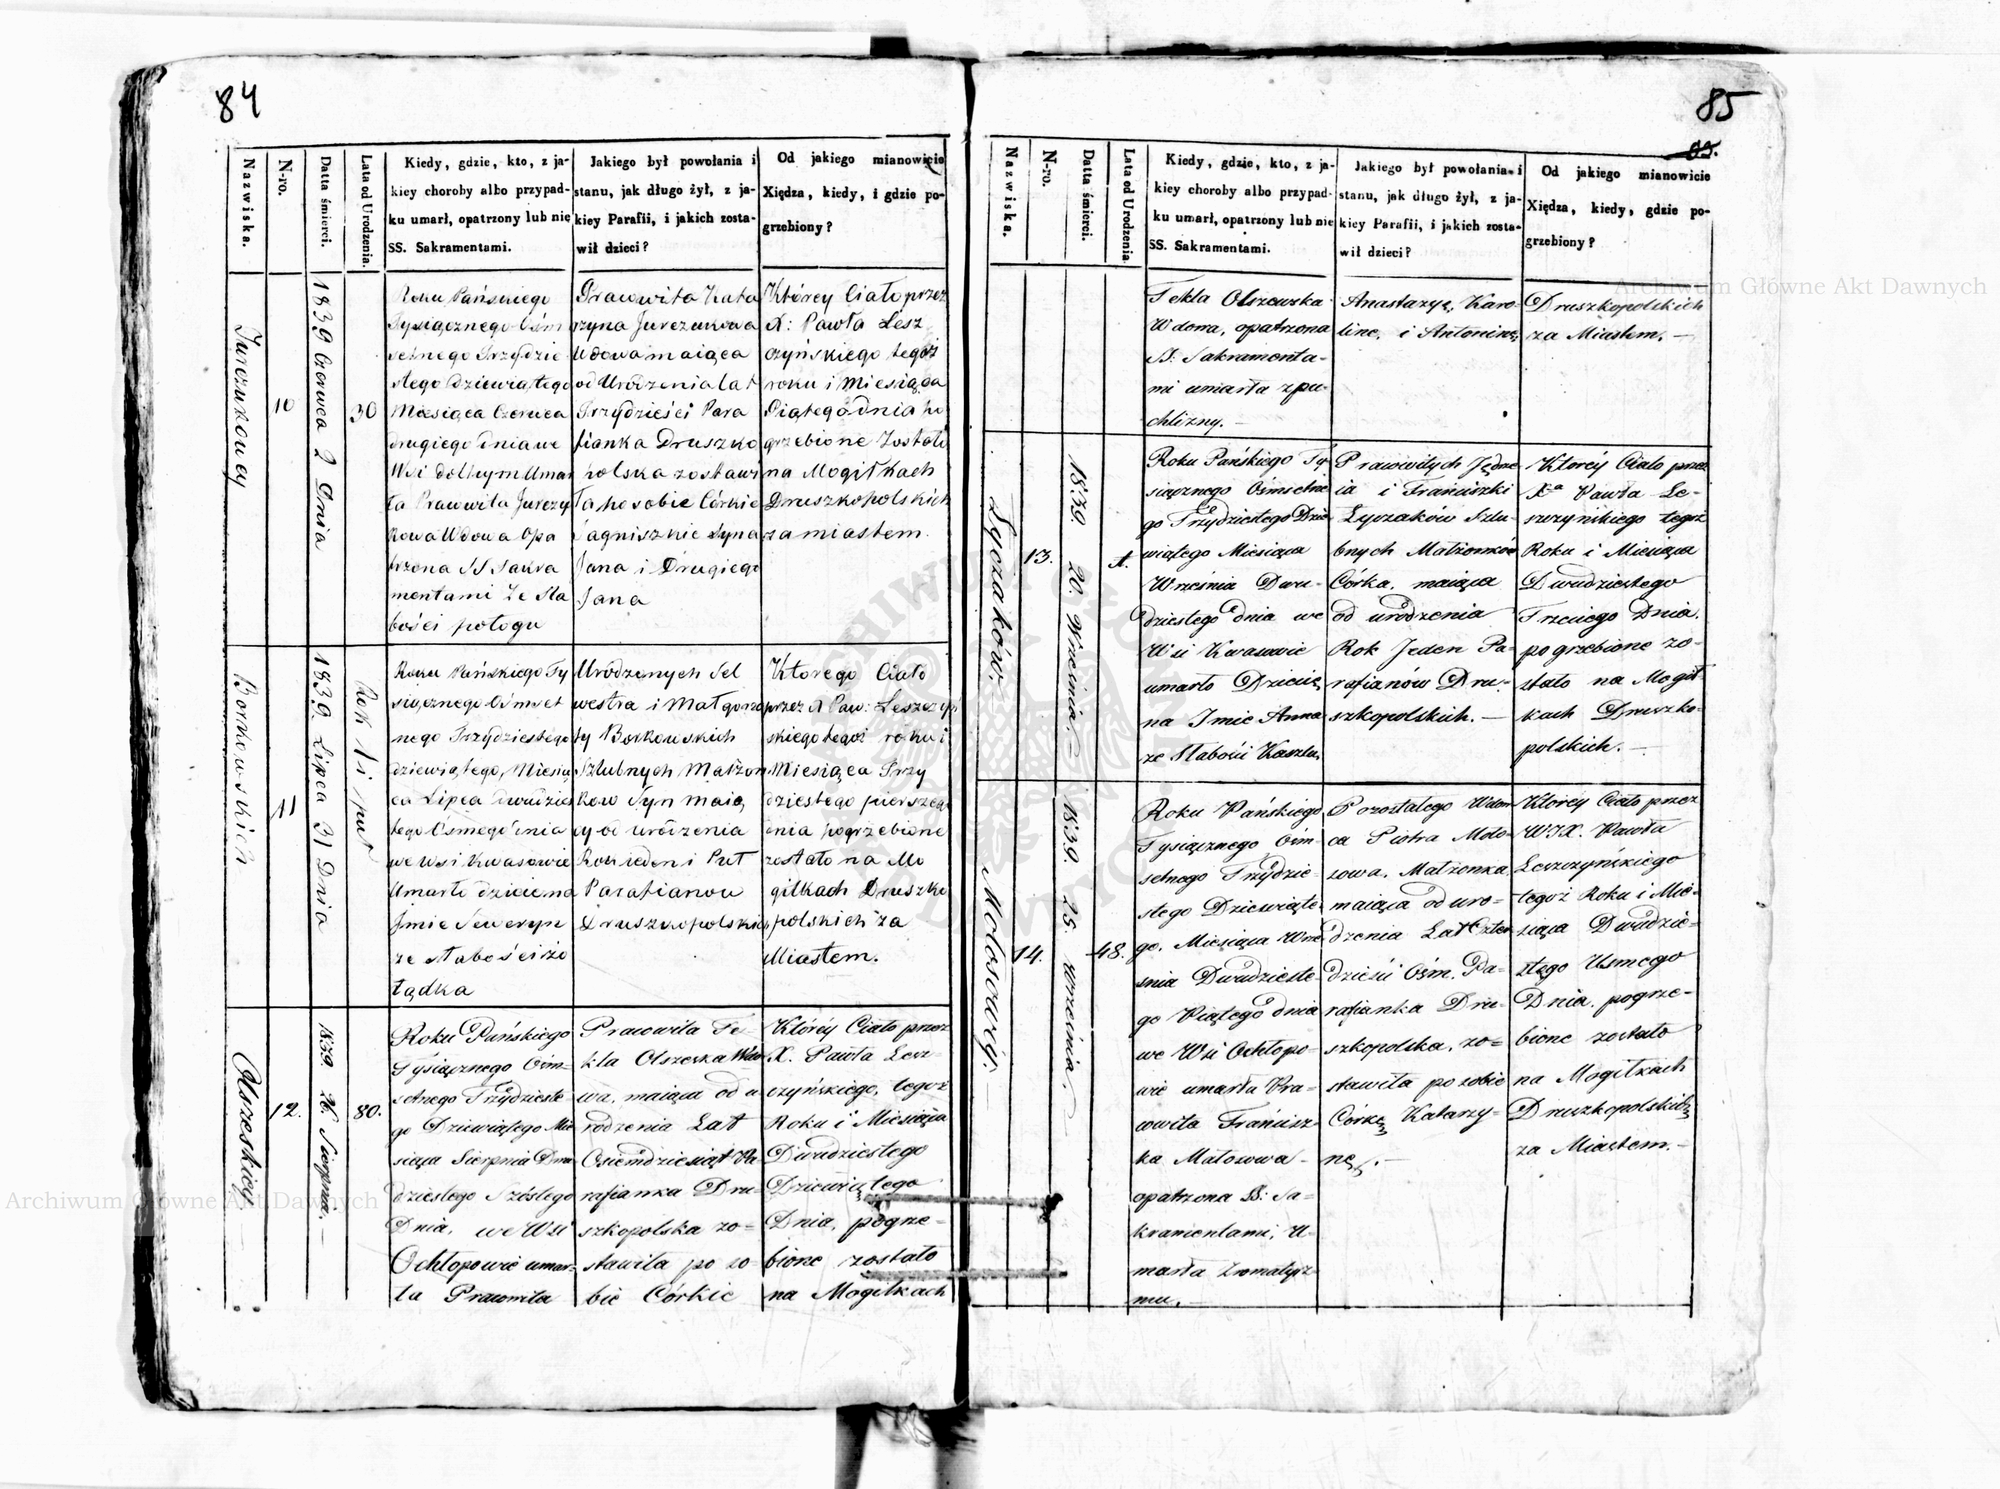 84
Nazwiska.
N-ro.
Datta śmierci.
Lata od Urodzenia.
Kiedy, gdzie, kto, z ja-
kiey choroby albo przypad-
ku umarł, opatrzony lub nie
SS. Sakramentami.
Jakiego był powołania i
stanu, jak długo żył, z ja-
kiey Parafii, i jakich zosta-
wił dzieci?
Od jakiego mianowicie
Xiędza, kiedy, i gdzie po-
grzebiony?
Jurczukowey
10
1839 Czerwca 2 Dnia
30
Roku Pańskiego
Tysiącznego Ośm
setnego Trzydzie
stego dziewiątego
Miesiąca Czerwca
drugiego dnia we
Wsi dolhym Umar
ła Prawowita Jurczy
kowa Wdowa Opa
trzona SS Sakra
mentami Ze Sła
bości połogu
Prawowita Kata
rzyna Jurczukowa
Wdowa maiąca
od Urodzenia lat
Trzydzieści Para
fianka Druszko
polska zostawi
ła po sobie Córkie
Jagniszkie Syna
Jana i Drugiego
Jana
Którey Ciało przez
X: Pawła Lesz
czyńskiego tegoż
roku i Miesiąca
Piątego dnia po
grzebione Zostało
na Mogiłkach
Druszkopolskich
za miastem.
Borkowskich
11
1839. Lipca 31 Dnia
Rok 1 i puł
Roku Pańskiego Ty
siącznego Ośmset
nego Trzydziestego
dziewiątego, Miesią
ca Lipca dwudzies
tego Osmego dnia
we wsi Kwasowie
Umarło dziecie na
Jmie Seweryn
ze słabości żo
łądka
Urodzonych Sel
westra i Małgorza
ty Borkowskich
Szlubnych Małżon
kow Syn maią
cy od urodzenia
Rok ieden i Puł
Parafianow
Druszkopolskich
Ktorego Ciało
przez X Paw: Leszczyń
skiego tegoż roku i
Miesiąca Trzy
dziestego pierszego
dnia pogrzebione
zostało na Mo
giłkach Druszko
polskich za
Miastem.
Olszeskiey
12.
1839. 26. Sierpnia.
80.
Roku Pańskiego
Tysiącznego Ośm-
setnego Trzydzieste-
go Dziewiątego Mie
siąca Sierpnia Dwu
dziestego Szóstego
Dnia, we Wsi
Ochłopowie umar-
ła Prawowita
Prawowita Te-
kla Olszeska Wdo
wa, maiąca od u
rodzenia Lat
Osiemdziesiąt Pa-
rafianka Dru-
szkopolska zo-
stawiła po so-
bie Córkie
Którey Ciało przez
X. Pawła Lesz-
czyńskiego, tegoż
Roku i Miesiąca
Dwudziestego
Dziewiątego
Dnia, pogrze-
bione zostało
na Mogiłkach
85
Nazwiska.
N-ro.
Datta śmierci.
Lata od Urodzenia
Kiedy, gdzie, kto, z ja-
kiey choroby albo przypad-
ku umarł, opatrzony lub nie
SS. Sakramentami.
Jakiego był powołania i
stanu, jak długo żył, z ja-
kiey Parafii, i jakich zosta-
wił dzieci?
Od jakiego mianowicie
Xiędza, kiedy, gdzie po-
grzebiony?
Tekla Olszewska
Wdowa, opatrzona
SS. Sakramenta-
mi umarła z pu-
chlizny.
Anastazyę, Karo-
linę, i Antoninę
Druszkopolskich
za Miastem. —
Łyczaków.
13.
1839. 20. Września.
1.
Roku Pańskiego Ty-
siącznego Ośmsetne
go Trzydziestego Dzie
wiątego Miesiąca
Września Dwu-
dziestego dnia we
Wsi Kwasowie
umarło Dziecię
na Imie Anna
ze Słabości Kaszlu.
Prawowitych Jędrze
ia i Franciszki
Łyczaków Szlu-
bnych Małżonków
Córka, maiąca
od urodzenia
Rok Jeden Pa-
rafianów Dru-
szkopolskich. —
Ktorey Ciało przez
Xa Pawła Le-
szczyńskiego tegoż
Roku i Miesiąca
Dwudziestego
Trzeciego Dnia.
pogrzebione zo-
stało na Mogił-
kach Druszko-
polskich. —
Mołosowey.
14.
1839. 25. Września.
48.
Roku Pańskiego
Tysiącznego Ośm-
setnego Trzydzie-
stego Dziewiąte-
go, Miesiąca Wrze
śnia Dwudzieste-
go Piątego dnia
we Wsi Ochłopo-
wie umarła Pra-
wowita Francisz
ka Mołosowa -
opatrzona SS: Sa-
kramentami, U-
marła z romatyz-
mu. —
Pozostałego Wdow
ca Piotra Moło-
sowa. Małżonka
maiąca od uro-
dzenia Lat Czter
dzieści Ośm. Pa-
rafianka Dru-
szkopolska, zo-
stawiła po sobie
Córkę Katarzy-
nę. —
Ktorey Ciało przez
WJX. Pawła
Leszczyńskiego
tegoż Roku i Mie-
siąca Dwudzie-
stego Usmego
Dnia, pogrze-
bione zostało
na Mogiłkach
Druszkopolskich
za Miastem. —
Archiwum Główne Akt Dawnych
Archiwum Główne Akt Dawnych